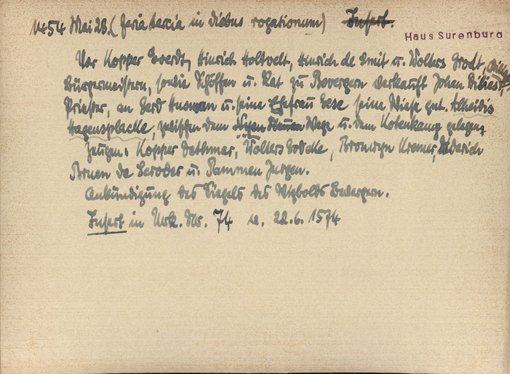 1454 Mai 28. (feria tercia in diebus rogationum) Insert.
Haus Surenburg
Vor Kopper Everdt, Hinrich Holtvelt, Hinrich de Smit u. Wolters Brodt,
Bürgermeistern, sowie Schöffen u. Rat zu Bevergern verkauft Johan
Priester, an Gerd Husman u. seine Ehefrau Gese seine Wiese gnt. Alheidis
Hagensplacke, zwischen dem Wege u. dem Kotenkamp gelegen,
Zeugen: Kopper Dethmar, Wolters Kremer, Diderich
Jurgen.
Ankündigung des Siegels des Wigbolds Bevergern.
Insert in Urk. Nr. 74 v. 22.6. 1574